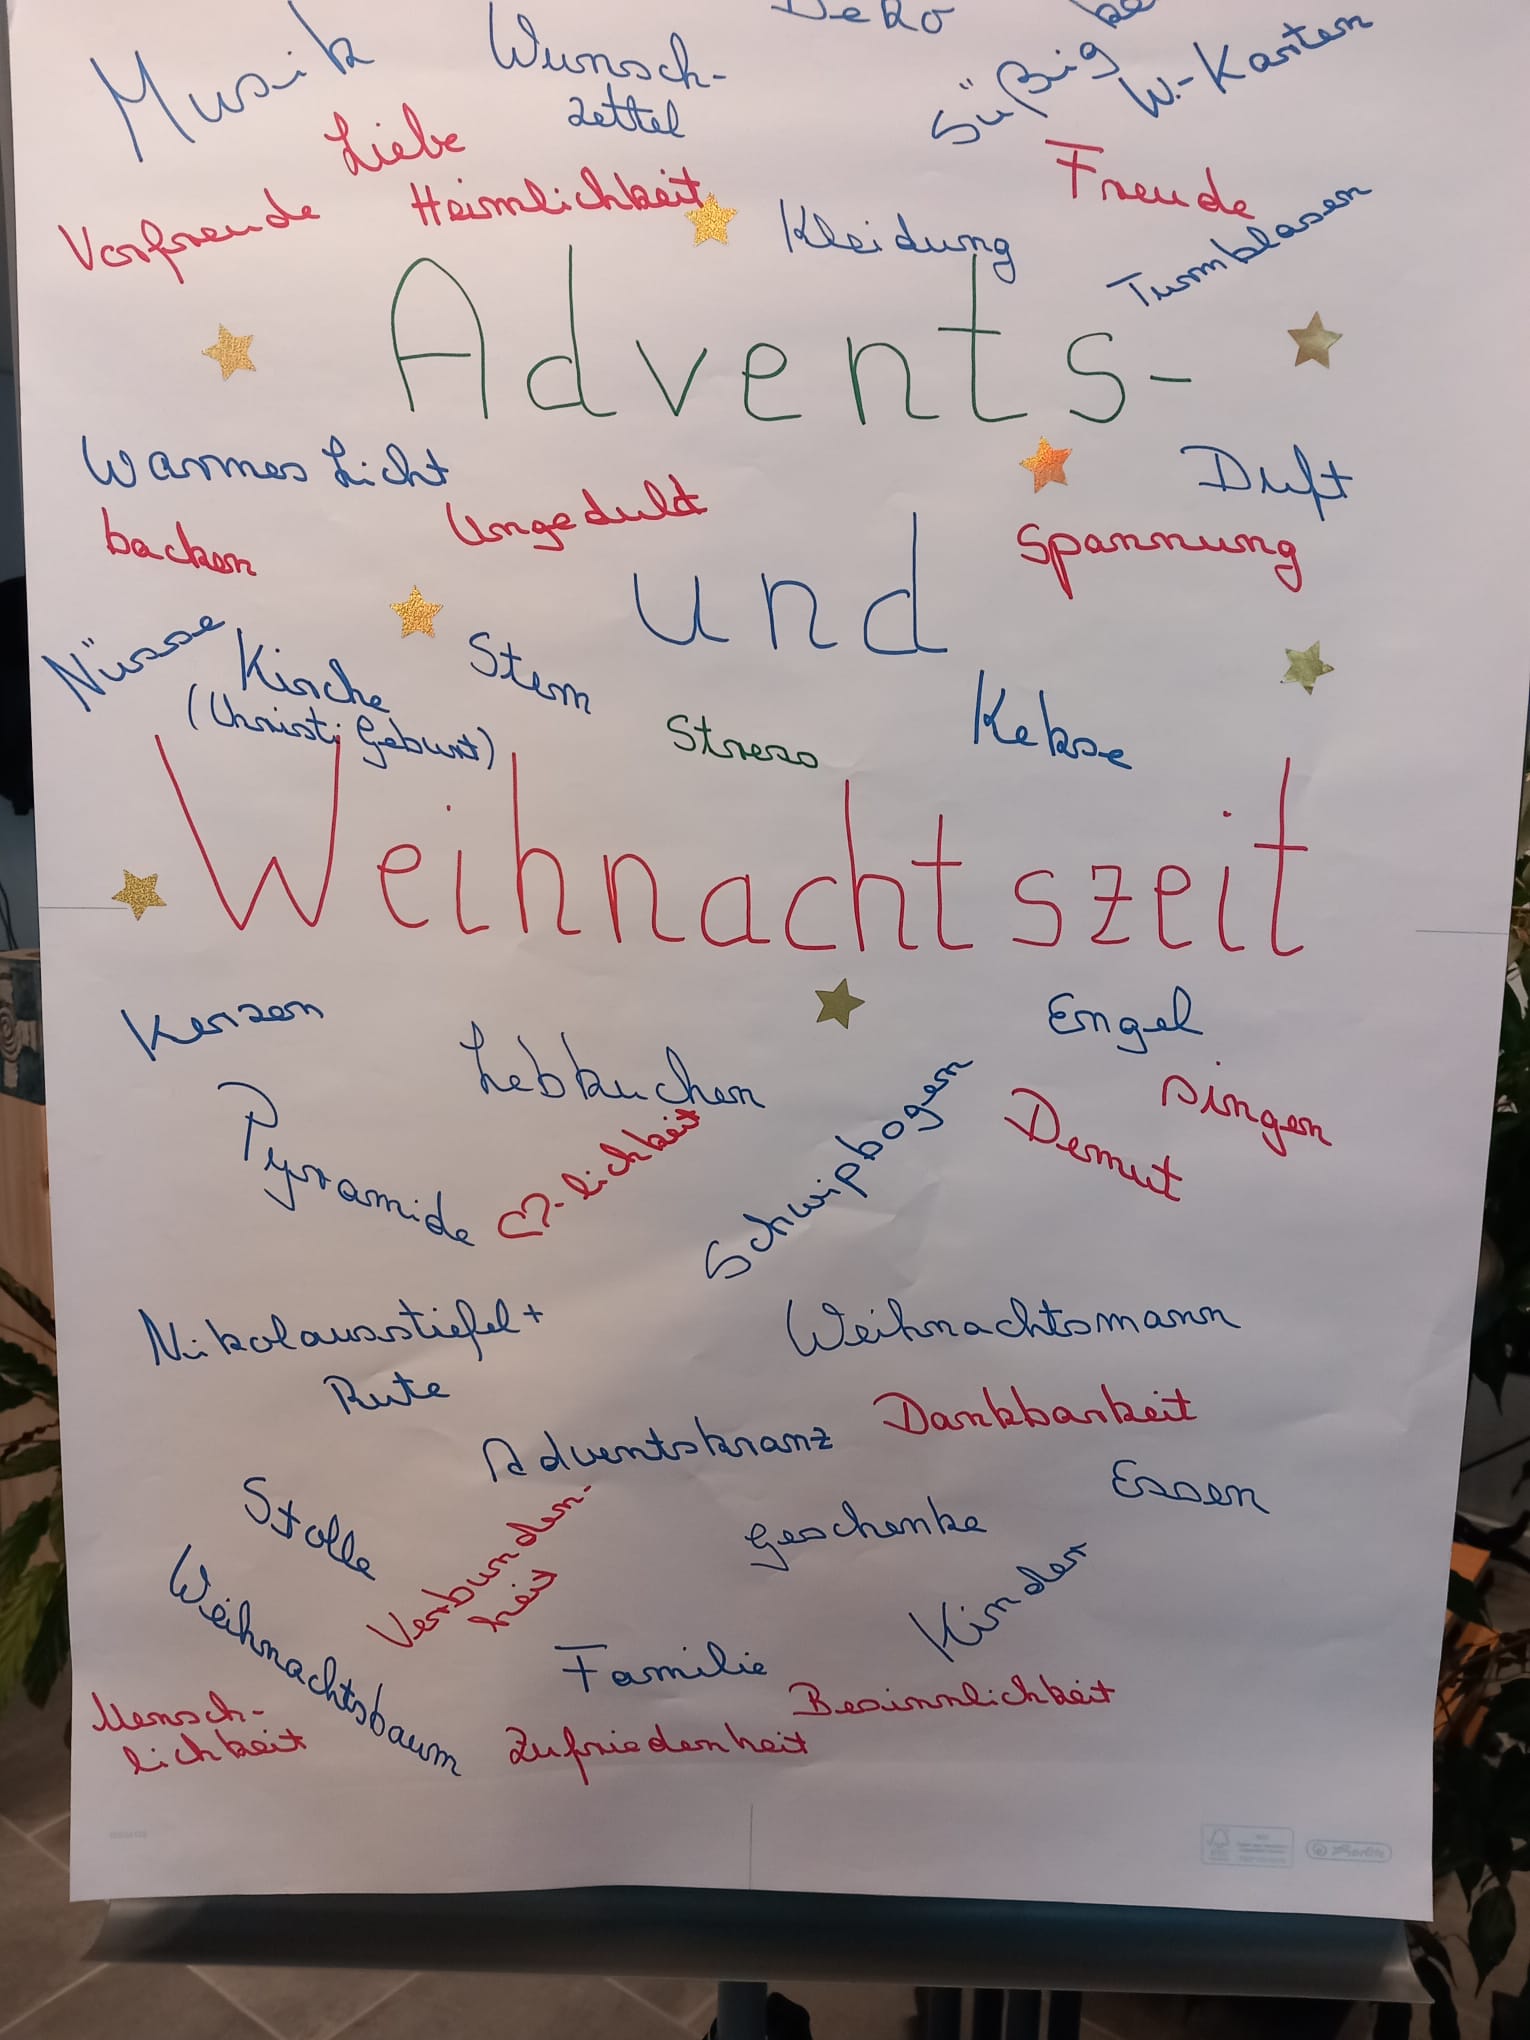 Deko
Musik
Wunsch-
zettel
Süßigke
W.-Karten
Liebe
Freude
Vorfreude
Heimlichkeit
Kleidung
Turmblasen
Advents-
Warmes Licht
Duft
backen
Ungeduld
Spannung
und
Nüsse
Kirche
(Christi Geburt)
Stern
Stress
Kekse
Weihnachtszeit
Kerzen
Lebkuchen
Engel
singen
Pyramide
♡-lichkeit
Schwipbogen
Demut
Nikolausstiefel +
Rute
Weihnachtsmann
Adventskranz
Dankbarkeit
Stolle
Verbunden-
heit
Geschenke
Essen
Weihnachtsbaum
Familie
Kinder
Mensch-
lichkeit
Zufriedenheit
Besinnlichkeit